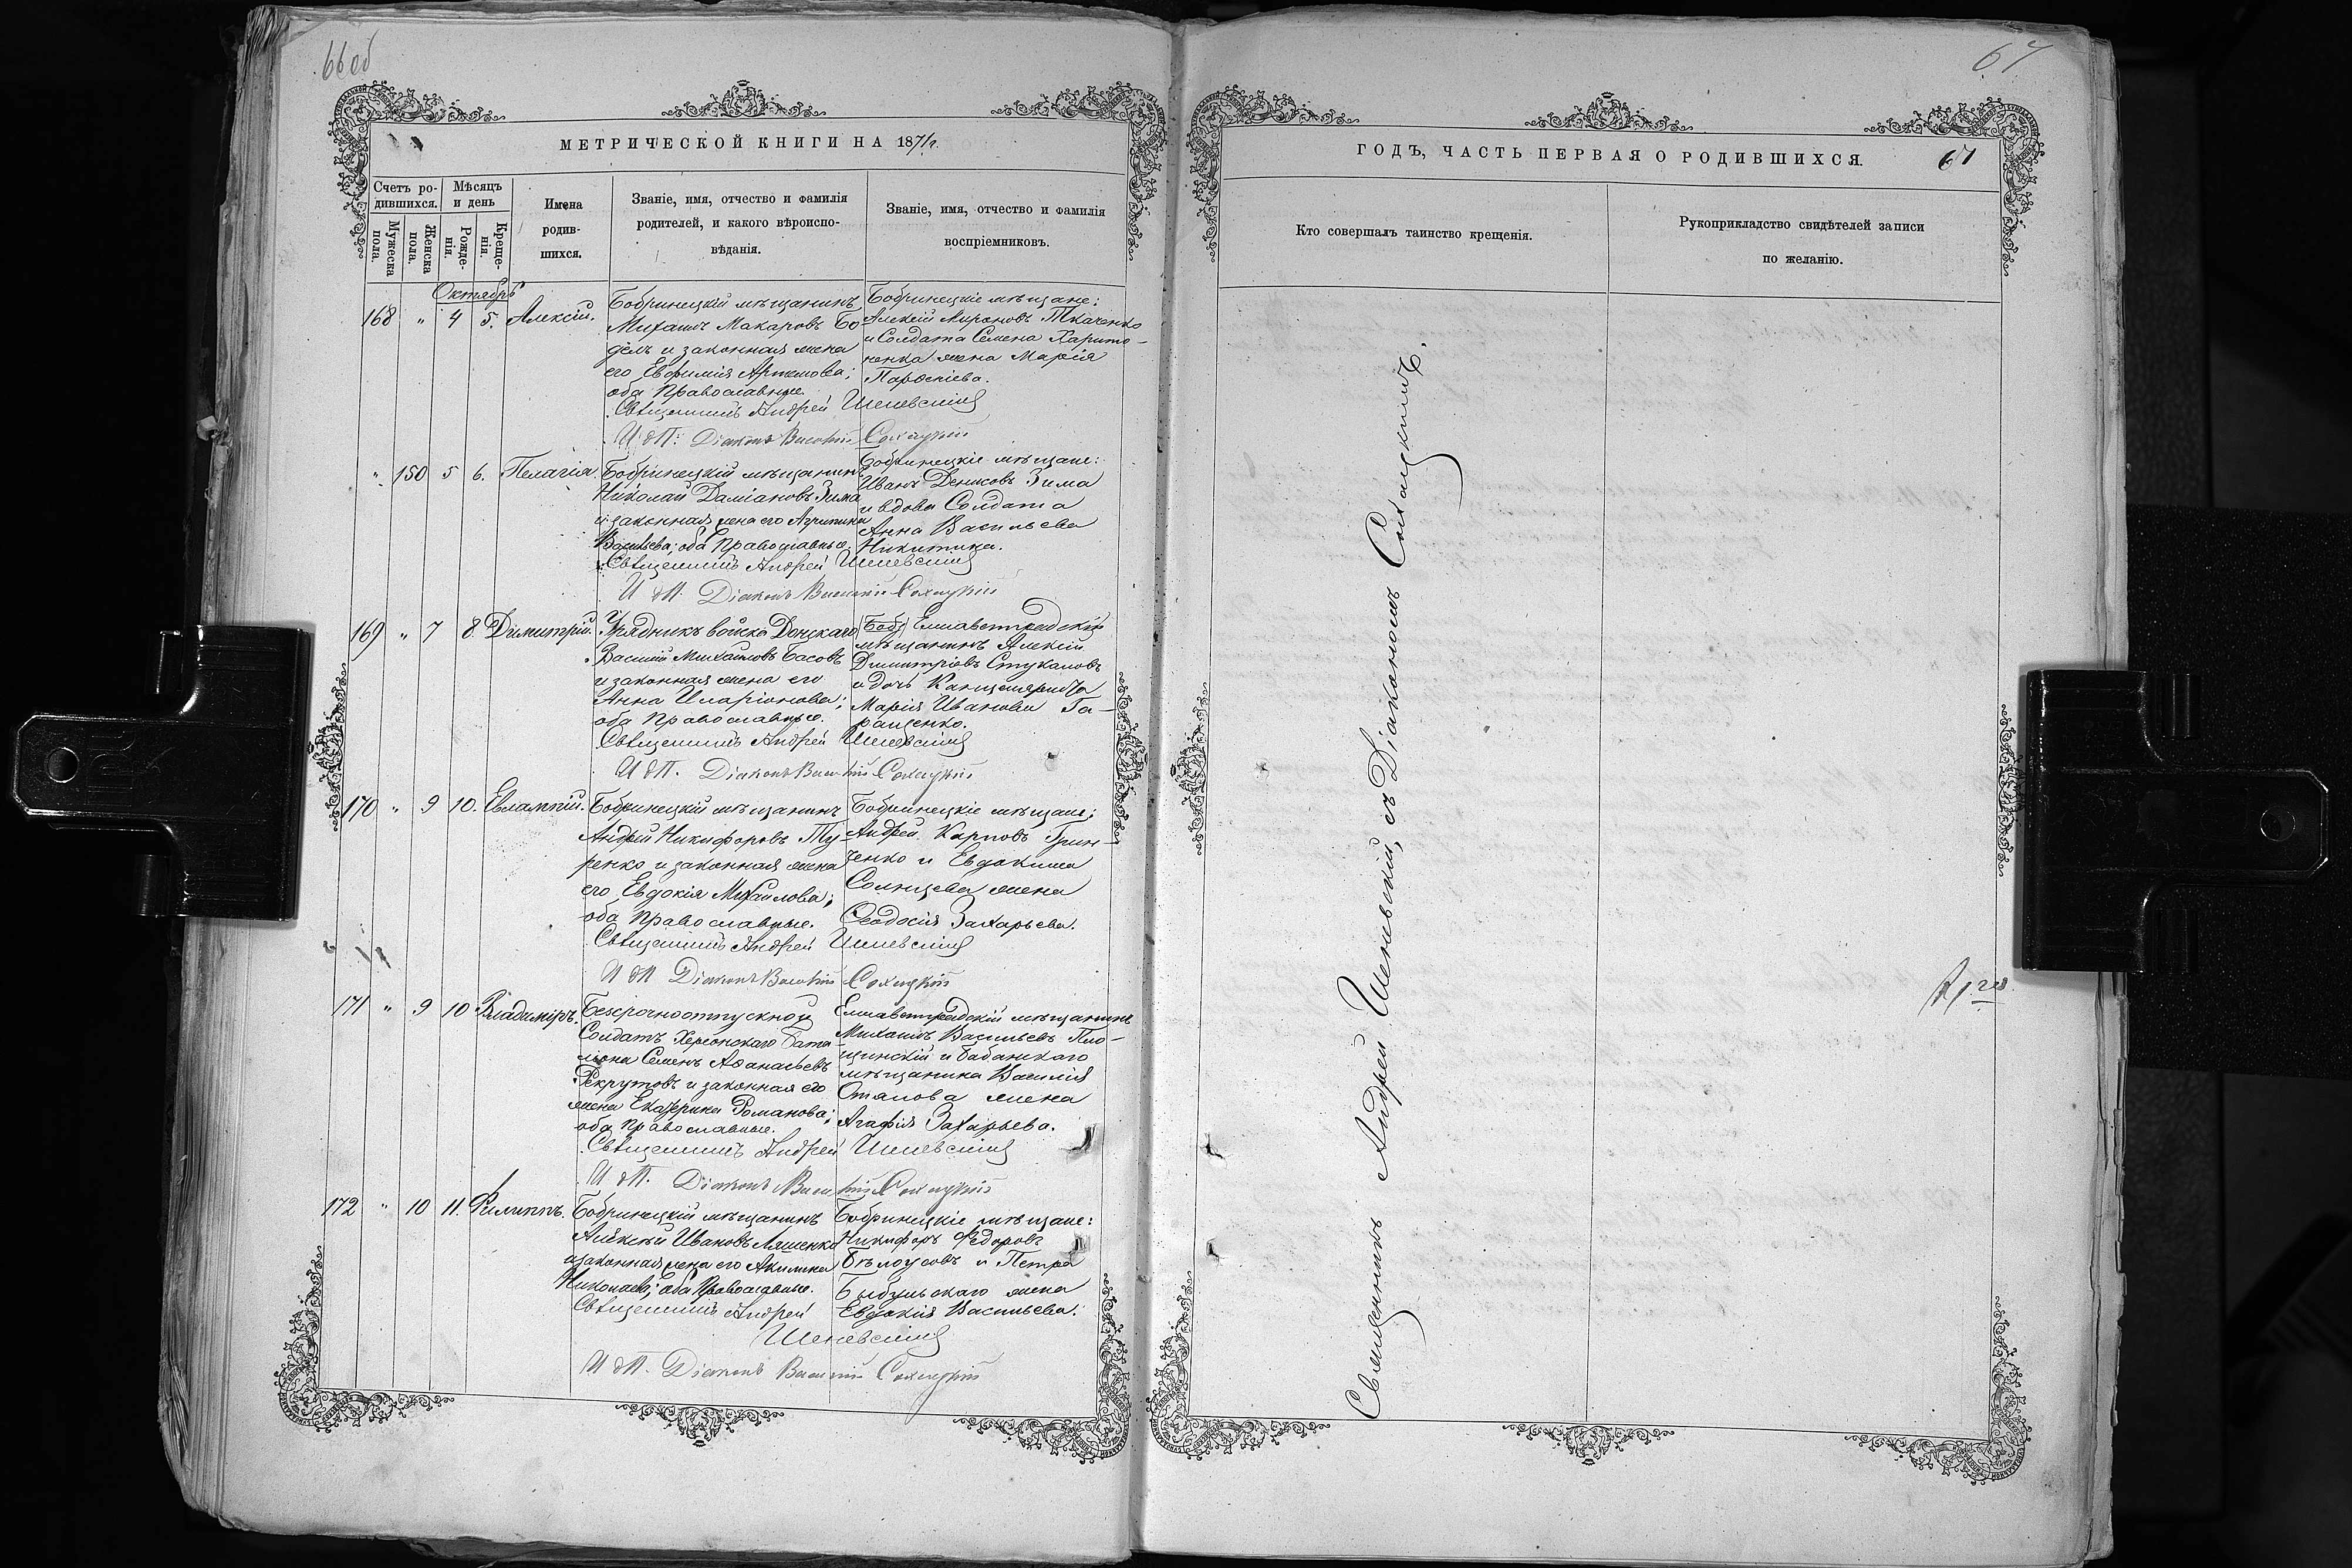 66об
МЕТРИЧЕСКОЙ КНИГИ НА 1871 г.
Счетъ ро-
дившихся.
Мѣсяцъ
и день
Имена
родив-
шихся.
Званіе, имя, отчество и фамилія
родителей, и какого вѣроиспо-
вѣданія.
Званіе, имя, отчество и фамилія
воспріемниковъ.
Мужеска
пола.
Женска
пола.
Рожде-
нія.
Креще-
нія.
Октябрь
168 " 4 5. Алексій.
Бобринецкій мѣщанинъ
Михаилъ Макаровъ Бо
дѣлъ и законная жена
его Евфимія Артемова;
оба Православные.
Бобринецкіе мѣщане:
Алексій Мироновъ Ткаченко
и Солдата Семена Харито-
ненка жена Марія
Священникъ Андрей Шеневскій
И д П: Діаконъ Василій Сохацкій
" 150 5 6. Пелагія.
Бобринецкій мѣщанинъ
Николай Даміановъ Зима
и законная жена его Агрипина
Васильева; оба Православные.
Бобринецкіе мѣщане:
Иванъ Денисовъ Зима
и вдова Солдата
Анна Васильева
Никитина.
Священникъ Андрей Шеневскій
И д П. Діаконъ Василій Сохацкій
169 " 7 8. Димитрій.
Урядникъ войска Донскаго
Василій Михайловъ Басовъ
и законная жена его
Анна Иларіонова;
оба Православные.
Бобр Елисаветградскій
мѣщанинъ Алексій
Димитріовъ Стукаловъ
и дочь Канцеляриста
Марія Иванова Га-
ращенко.
Священникъ Андрей Шеневскій
И д П. Діаконъ Василій Сохацкій
170 " 9 10. Евлампій.
Бобринецкій мѣщанинъ
Андрей Никифоровъ Ту-
ренко и законная жена
его Евдокія Михайлова;
оба Православные.
Бобринецкіе мѣщане:
Андрей Карповъ Грин-
ченко и Евдокима
Солнцева жена
Ѳеодосія Захарьева.
Священникъ Андрей Шеневскій
И д П Діаконъ Василій Сохацкій
171 " 9 10 Владиміръ.
Безсрочноотпускной
Солдатъ Херсонскаго бата-
ліона Семенъ Аѳанасьевъ
Рекрутовъ и законная его
жена Екатерина Романова;
оба Православные.
Елисаветградскій мѣщанинъ
Михаилъ Васильевъ Пло-
щинскій и бабанскаго
мѣщанина Василія
жена
Агафія Захарьева.
Священникъ Андрей Шеневскій
И д П. Діаконъ Василій Сохацкій
172 " 10 11. Филиппъ.
Бобринецкій мѣщанинъ
Алексѣй Ивановъ Ляшенко
и законная жена его Акилина
Николаева; оба Православные.
Бобринецкіе мѣщане:
Никифоръ Федоровъ
Бѣлоусовъ и Петра
жена
Евдокія Васильева.
Священникъ Андрей
Шеневскій
И д П. Діаконъ Василій Сохацкій
67
ГОДЪ, ЧАСТЬ ПЕРВАЯ О РОДИВШИХСЯ.
67
Кто совершалъ таинство крещенія.
Рукоприкладство свидѣтелей записи
по желанію.
Священникъ Андрей Шеневскій, съ Діакономъ Сохацкимъ.